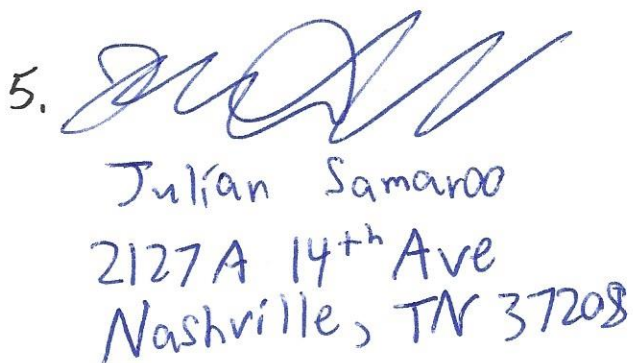 5.
Julian Samaroo
2127A 14th Ave
Nashville, TN 37208